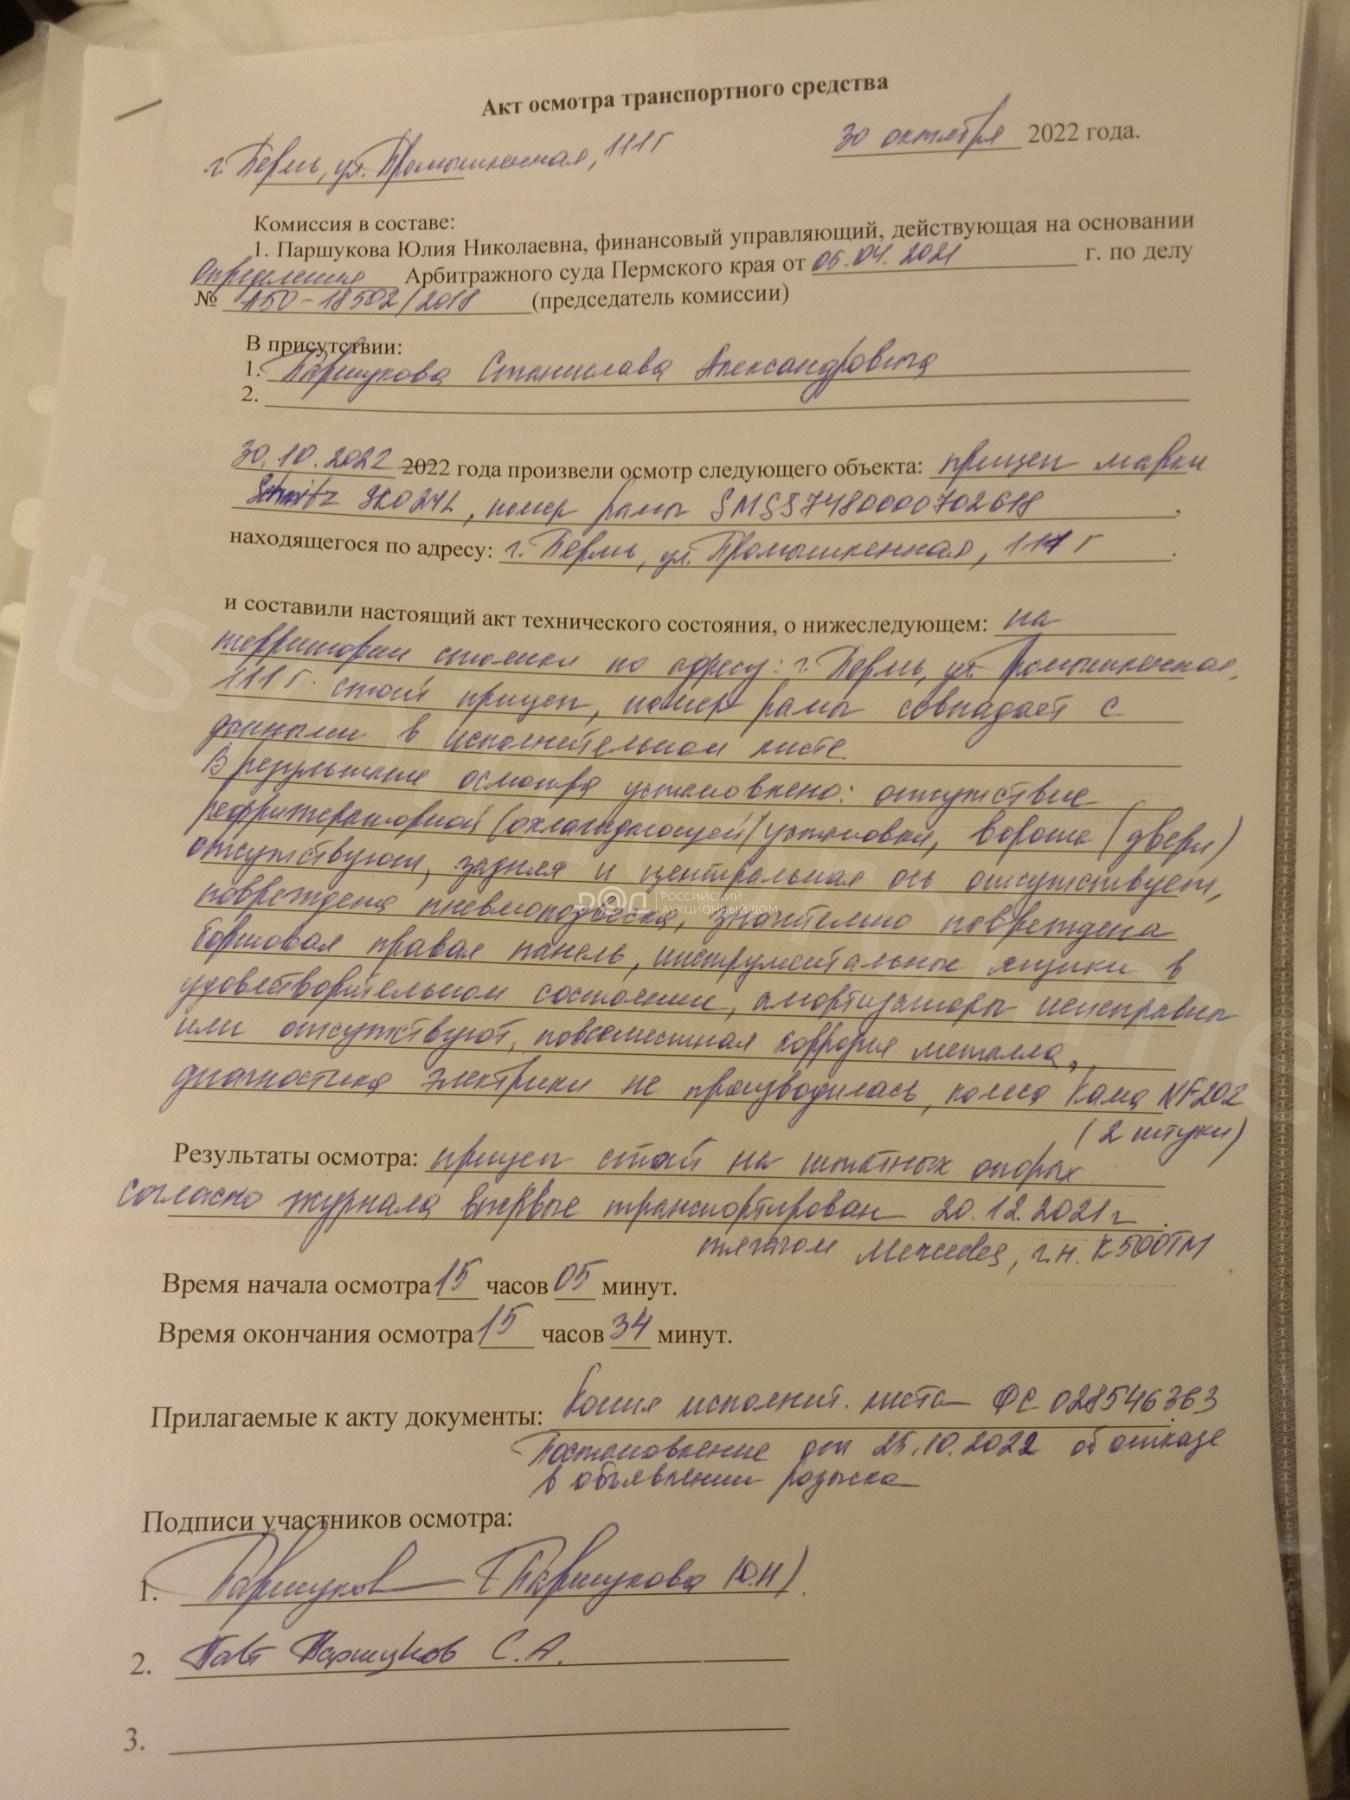 Акт осмотра транспортного средства
г. Пермь, ул. Промышленная, 111 г
30 октября 2022 года.
Комиссия в составе:
1. Паршукова Юлия Николаевна, финансовый управляющий, действующая на основании
Определения Арбитражного суда Пермского края от 05.04.2021 г. по делу
№ А50-18502/2018 (председатель комиссии)
В присутствии:
1. Паршукова Станислава Александровича
2.
30.10.2022 2022 года произвели осмотр следующего объекта: прицеп марки
Schmitz SKO24L, номер рамы SMSS7480000702618,
находящегося по адресу: г. Пермь, ул. Промышленная, 111 г.
и составили настоящий акт технического состояния, о нижеследующем: на
территории стоянки по адресу: г. Пермь, ул. Промышленная,
111 г. стоит прицеп, номер рамы совпадает с
данными в исполнительном листе
В результате осмотра установлено: отсутствие
рефрижераторной (охлаждающей) установки, ворота (двери)
отсутствуют, задняя и центральная ось отсутствует,
повреждена пневмоподвеска, значительно повреждена
бортовая правая панель, инструментальные ящики в
удовлетворительном состоянии, амортизаторы неисправны
или отсутствуют, повсеместная коррозия металла,
диагностика электрики не производилась, колеса Кама NF202
(2 штуки)
Результаты осмотра: прицеп стоит на штатных опорах
согласно журнала впервые транспортирован 20.12.2021 г.
тягачом Мерседес, г.н. К500ТМ
Время начала осмотра 15 часов 05 минут.
Время окончания осмотра 15 часов 34 минут.
Прилагаемые к акту документы: Копия исполнит. листа ФС 028546363
Постановление от 25.10.2022 об отказе
в объявлении розыска
Подписи участников осмотра:
1. Паршуков (Паршукова Ю.Н)
2. Паршуков С.А.
3.
РАД РОССИЙСКИЙ
АУКЦИОННЫЙ ДОМ